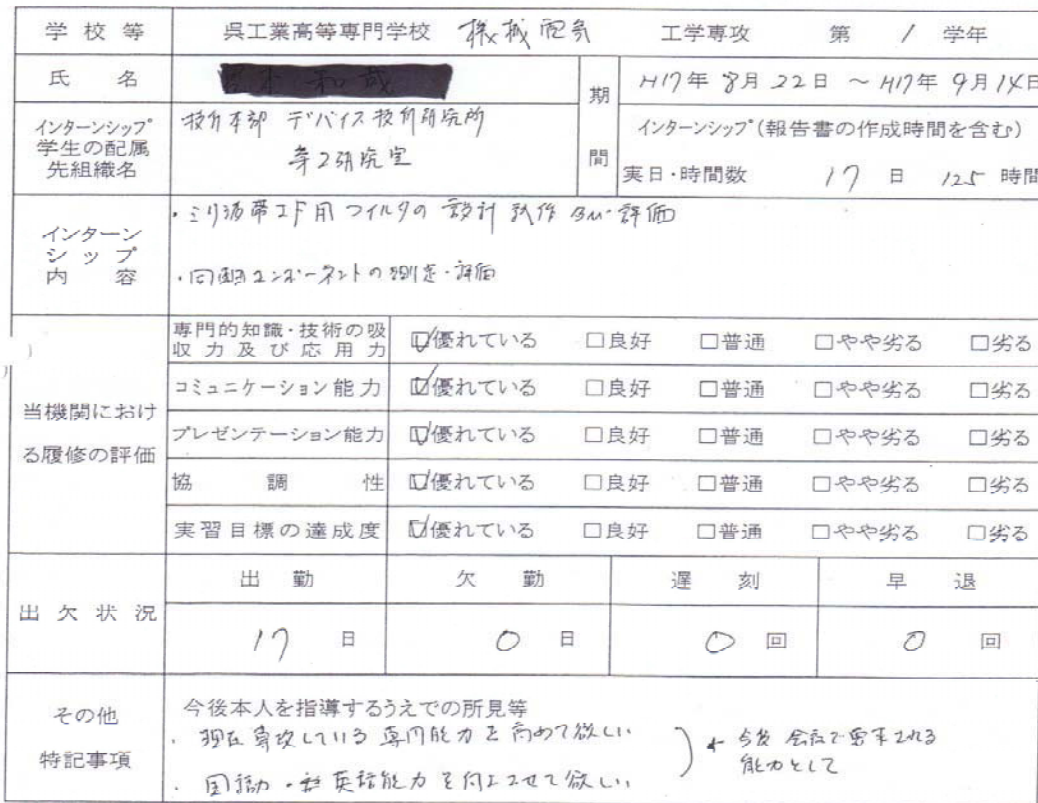 学校等 呉工業高等専門学校 機械電気 工学専攻 第 1 学年
氏名
期間 H17年 8月 22日 ～ H17年 9月 14日
インターンシップ学生の配属先組織名
技術本部 デバイス技術研究所
第2研究室
インターンシップ(報告書の作成時間を含む)
実日・時間数 17 日 125 時間
インターンシップ内容
・ミリ波帯IF用フィルタの設計 試作 および 評価
・回路コンポーネントの測定・評価
当機関における履修の評価
専門的知識・技術の吸収力及び応用力 ☑優れている □良好 □普通 □やや劣る □劣る
コミュニケーション能力 ☑優れている □良好 □普通 □やや劣る □劣る
プレゼンテーション能力 ☑優れている □良好 □普通 □やや劣る □劣る
協調性 ☑優れている □良好 □普通 □やや劣る □劣る
実習目標の達成度 ☑優れている □良好 □普通 □やや劣る □劣る
出欠状況
出勤 欠勤 遅刻 早退
17 日 0 日 0 回 0 回
その他特記事項
今後本人を指導するうえでの所見等
・現在専攻している専門能力を高めて欲しい
・英語能力を向上させて欲しい
← 今後 会社で要求される
能力として